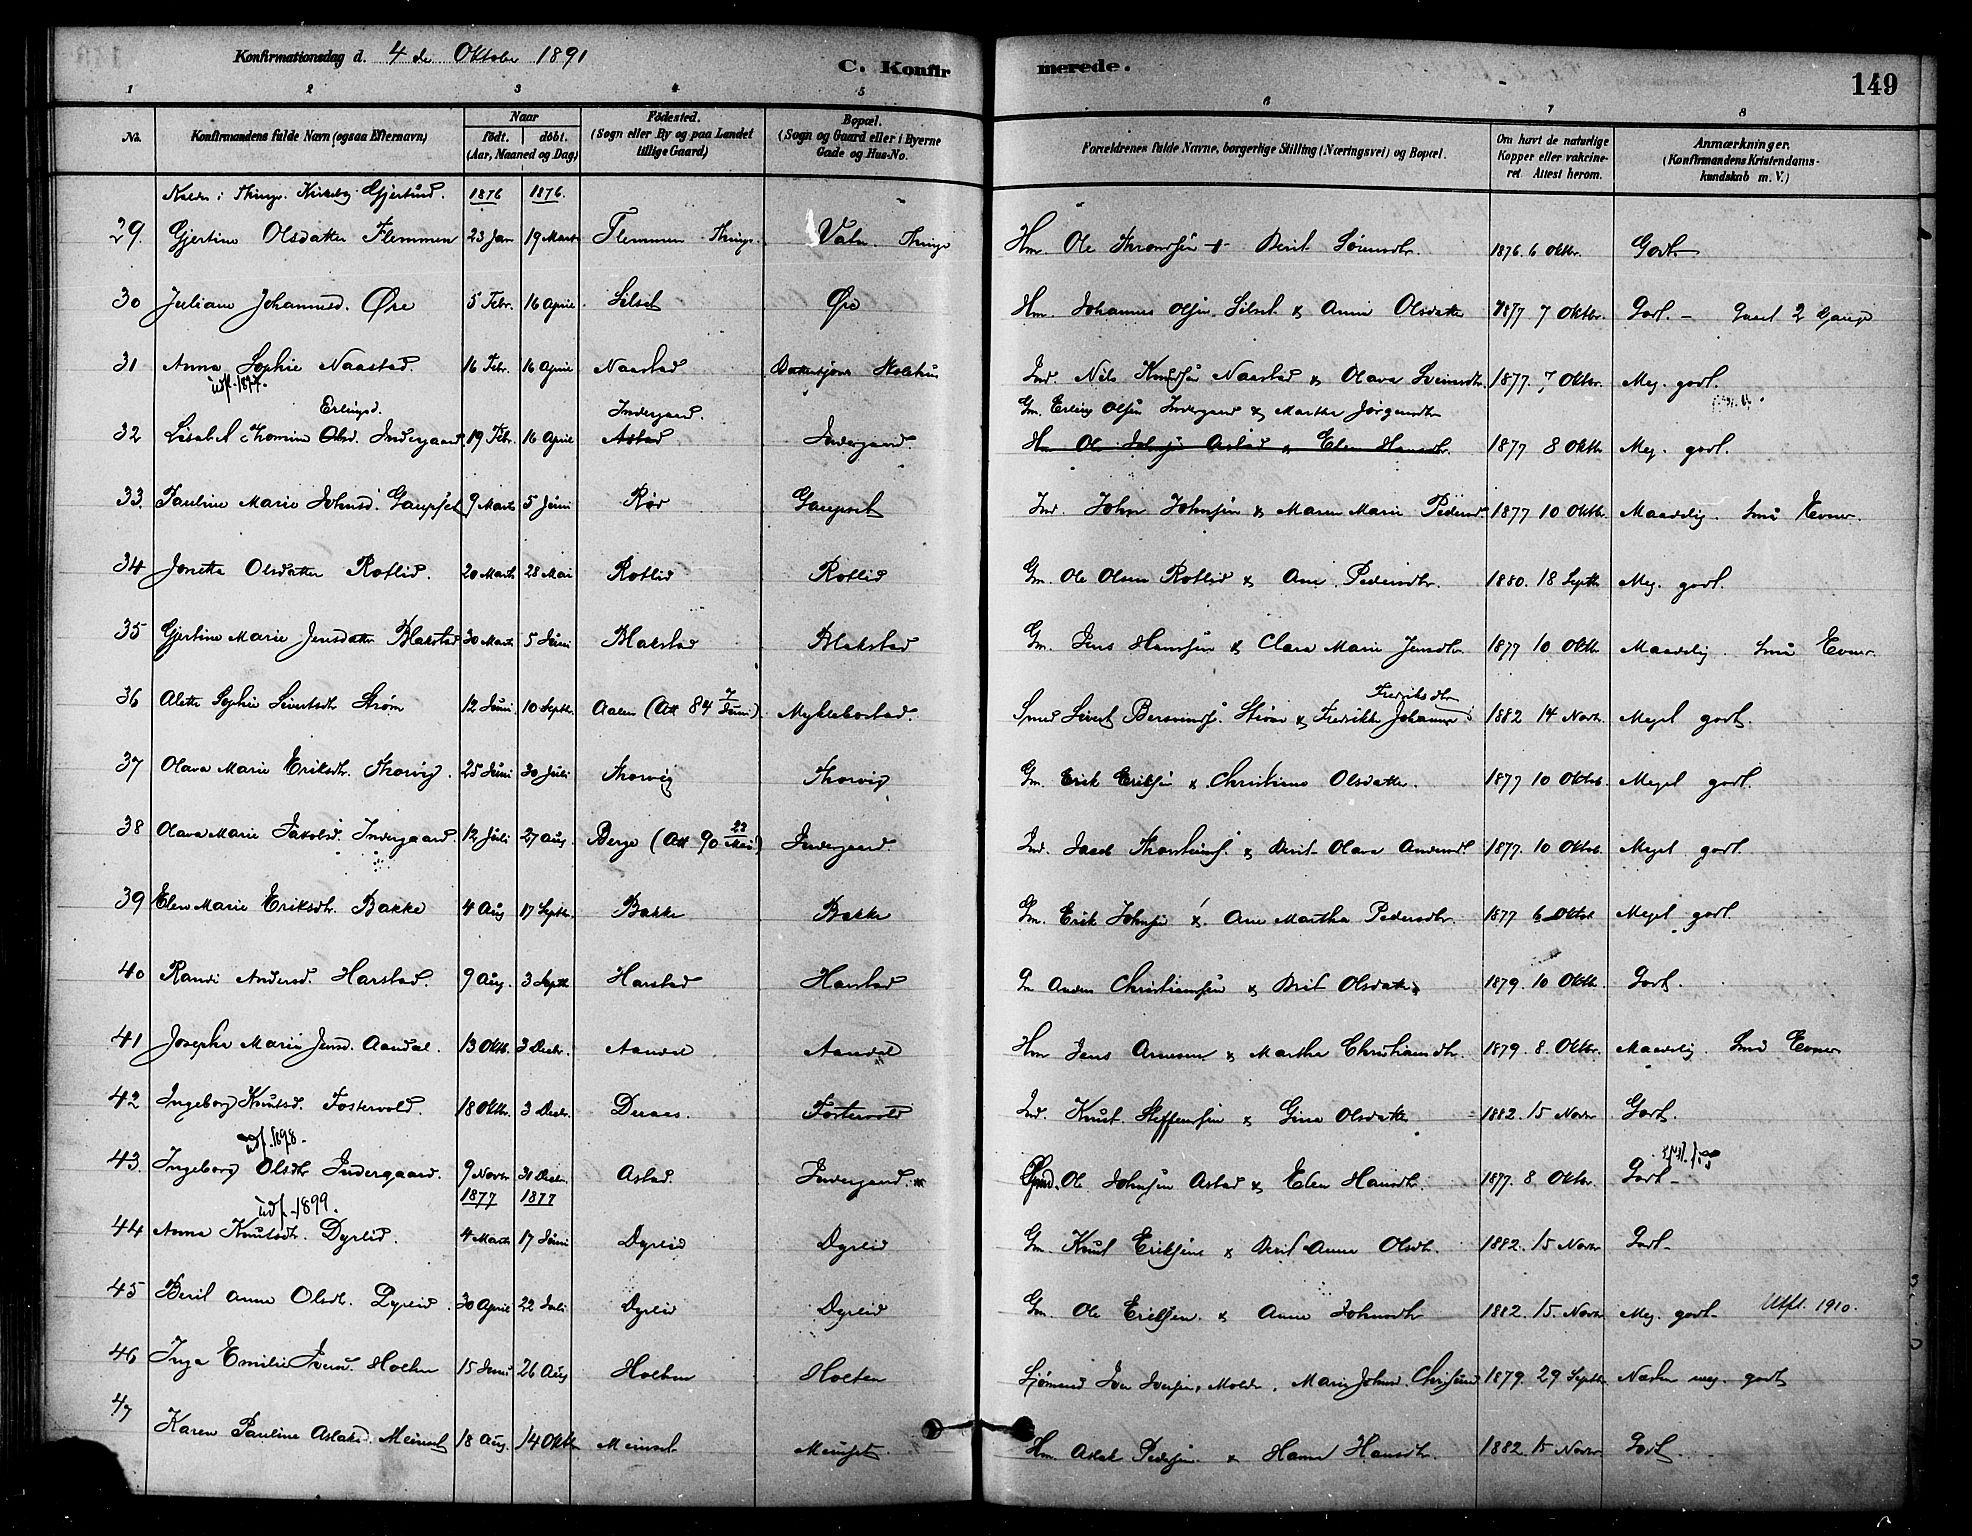 Konfirmationsdag d. 4 de Oktober 1891
C. Konfirmerede.
149
1 2 3 4 5 6 7 8
No. Konfirmandens fulde Navn (ogsaa Efternavn) Naar født. døbt. (Aar, Maaned og Dag) Fødested. (Sogn eller By og paa Landet tillige Gaard) Bopæl. (Sogn og Gaard eller i Byerne Gade og Hus-No. Forældrenes fulde Navne, borgerlige Stilling (Næringsvei) og Bopæl. Om havt de naturlige Kopper eller vakcineret. Attest herom. Anmærkninger. (Konfirmandens Kristendomskundskab m. V.)
i Kirkebog Gjertrud. 1876 1876.
29. Gjertine Olsdatter Flemmen 23 Jan 19 Marts Flemmen Thingv. Vatn. Thingv Hm. Ole Throndsen + Berit 1876. 6 Oktbr. Godt
30 Juliane Johannesd. Øre 5 Febr. 16 April Silset Øre Hm. Johannes Olsen Silset & Anne Olsdatter 1877 7 Oktbr. Godt. – 2 Gange
31 Anna Sophie Naastad 16 Febr. 16 April Naastad Ind. Nils Knudsen Naastad & Olava 1877. 7 Oktbr. Meg. godt.
udf. 1877.
Erlingsd. Indergaard Gm. Erling Olsen Indergaard & Marthe Jørgensdtr
32 Lisabet Thomine Olsd. Indergaard 19 Febr. 16 April Astad Indergaard. Hm Ole Johnsen Astad & Elen Hansdtr. 1877 8 Oktbr Meg. godt.
33. Pauline Marie Johnsd. Gaupset 9 Marts 5 Juni Rør Gaupset Ind. John Johnsen & Maren Marie Pedersd. 1877 10 Oktbr. Maadelig. Smü Evner.
34 Jonetta Olsdatter Rotlid. 20 Marts 28 Mai Rotlid Rotlid Gm. Ole Olsen Rotlid & Ane Pedersdtr. 1880. 18 Septbr Meg. godt.
35 Gjertine Marie Jensdatter Blakstad 30 Marts 5 Juni Blakstad Blakstad Gm. Jens Hansen & Clara Marie Jensdtr. 1877 10 Oktbr Maadelig. Smü Evner.
36 Alette Sophie Sivertsdtr Strøm 12 Juni 10 Septbr. Aalen (Att 84 7/Juni) Myklebostad. Smed Sivert Strøm & Fredrikke Johanne Fredriksdtr 1882 14 Novbr. Meget godt.
37 Olava Marie Eriksdtr. Thorvig. 25 Juni 30 Juli Thorvig Thorvig Gm. Erik Eriksen & Christiane Olsdatter. 1877 10 Oktbr. Meget godt.
38 Olava Marie Jakobsd. Indergaard. 12 Juli 27 Aug. Berge (Att 90 22/Mai) Indergaard. Ind. Jacob & Berit Olava Andersd. 1877. 10 Oktbr. Meget godt.
39 Elen Marie Eriksdtr. Bakke 4 Aug 17 Septbr. Bakke Bakke Gm. Erik Johnsen & Ane Martha Pedersdtr. 1877 6 Oktbr Meget godt.
40 Randi Andersd. Harstad. 9 Aug. 3 Septbr Harstad Harstad Gm Anders Christiansen & Brit Olsdatter 1879. 10 Oktbr. Godt.
41 Josepha Marie Jensd. Aandal. 13 Oktbr. 3 Decbr. Aandal Aandal Hm Jens Arnesen & Martha Christiansdtr. 1879. 8. Oktbr. Maadelig. Smü Evner
42 Ingeborg Knutsd. Fostervold. 18 Oktbr. 3 Decbr. Deraas. Fostervold Ind. Knut Steffensen & Gina Olsdatter 1882. 15 Novbr Godt.
udf. 1898.
43. Ingeborg Olsdtr Indergaard. 9 Novbr 31 Decbr. Astad. Indergaard Ole Johnsen Astad & Elen Hansdtr. 1877. 8 Oktbr. Godt
udf. 1899. 1877 1877
44 Anna Knutsdtr. Dyrlid. 4 Marts 17 Juni Dyrlid Dyrlid Gm. Knut Eriksen & Berit Anne Olsdtr. 1882. 15 Novbr Godt
45 Beril Anne Olsdtr. Dyrlid. 30 April 22 Juli Dyrlid Dyrlid Gm. Ole Eriksen & Anne Johnsdtr 1882. 15. Novbr Meg. godt. Utfl. 1910.
46 Inga Emilie Iversd. Holten 15 Juni 26 Aug Holten Holten Sjømand Iver Iversen, Molde, Marie Johnsd. Christsund 1879. 29 Septbr. Næsten meg. godt
47 Karen Pauline Aslaksd. Meinset 18 Aug. 14 Oktbr Meinset Meinset. Hm. Aslak Pedersen & Hanna Hansdtr. 1882. 15 Novbr. Godt.